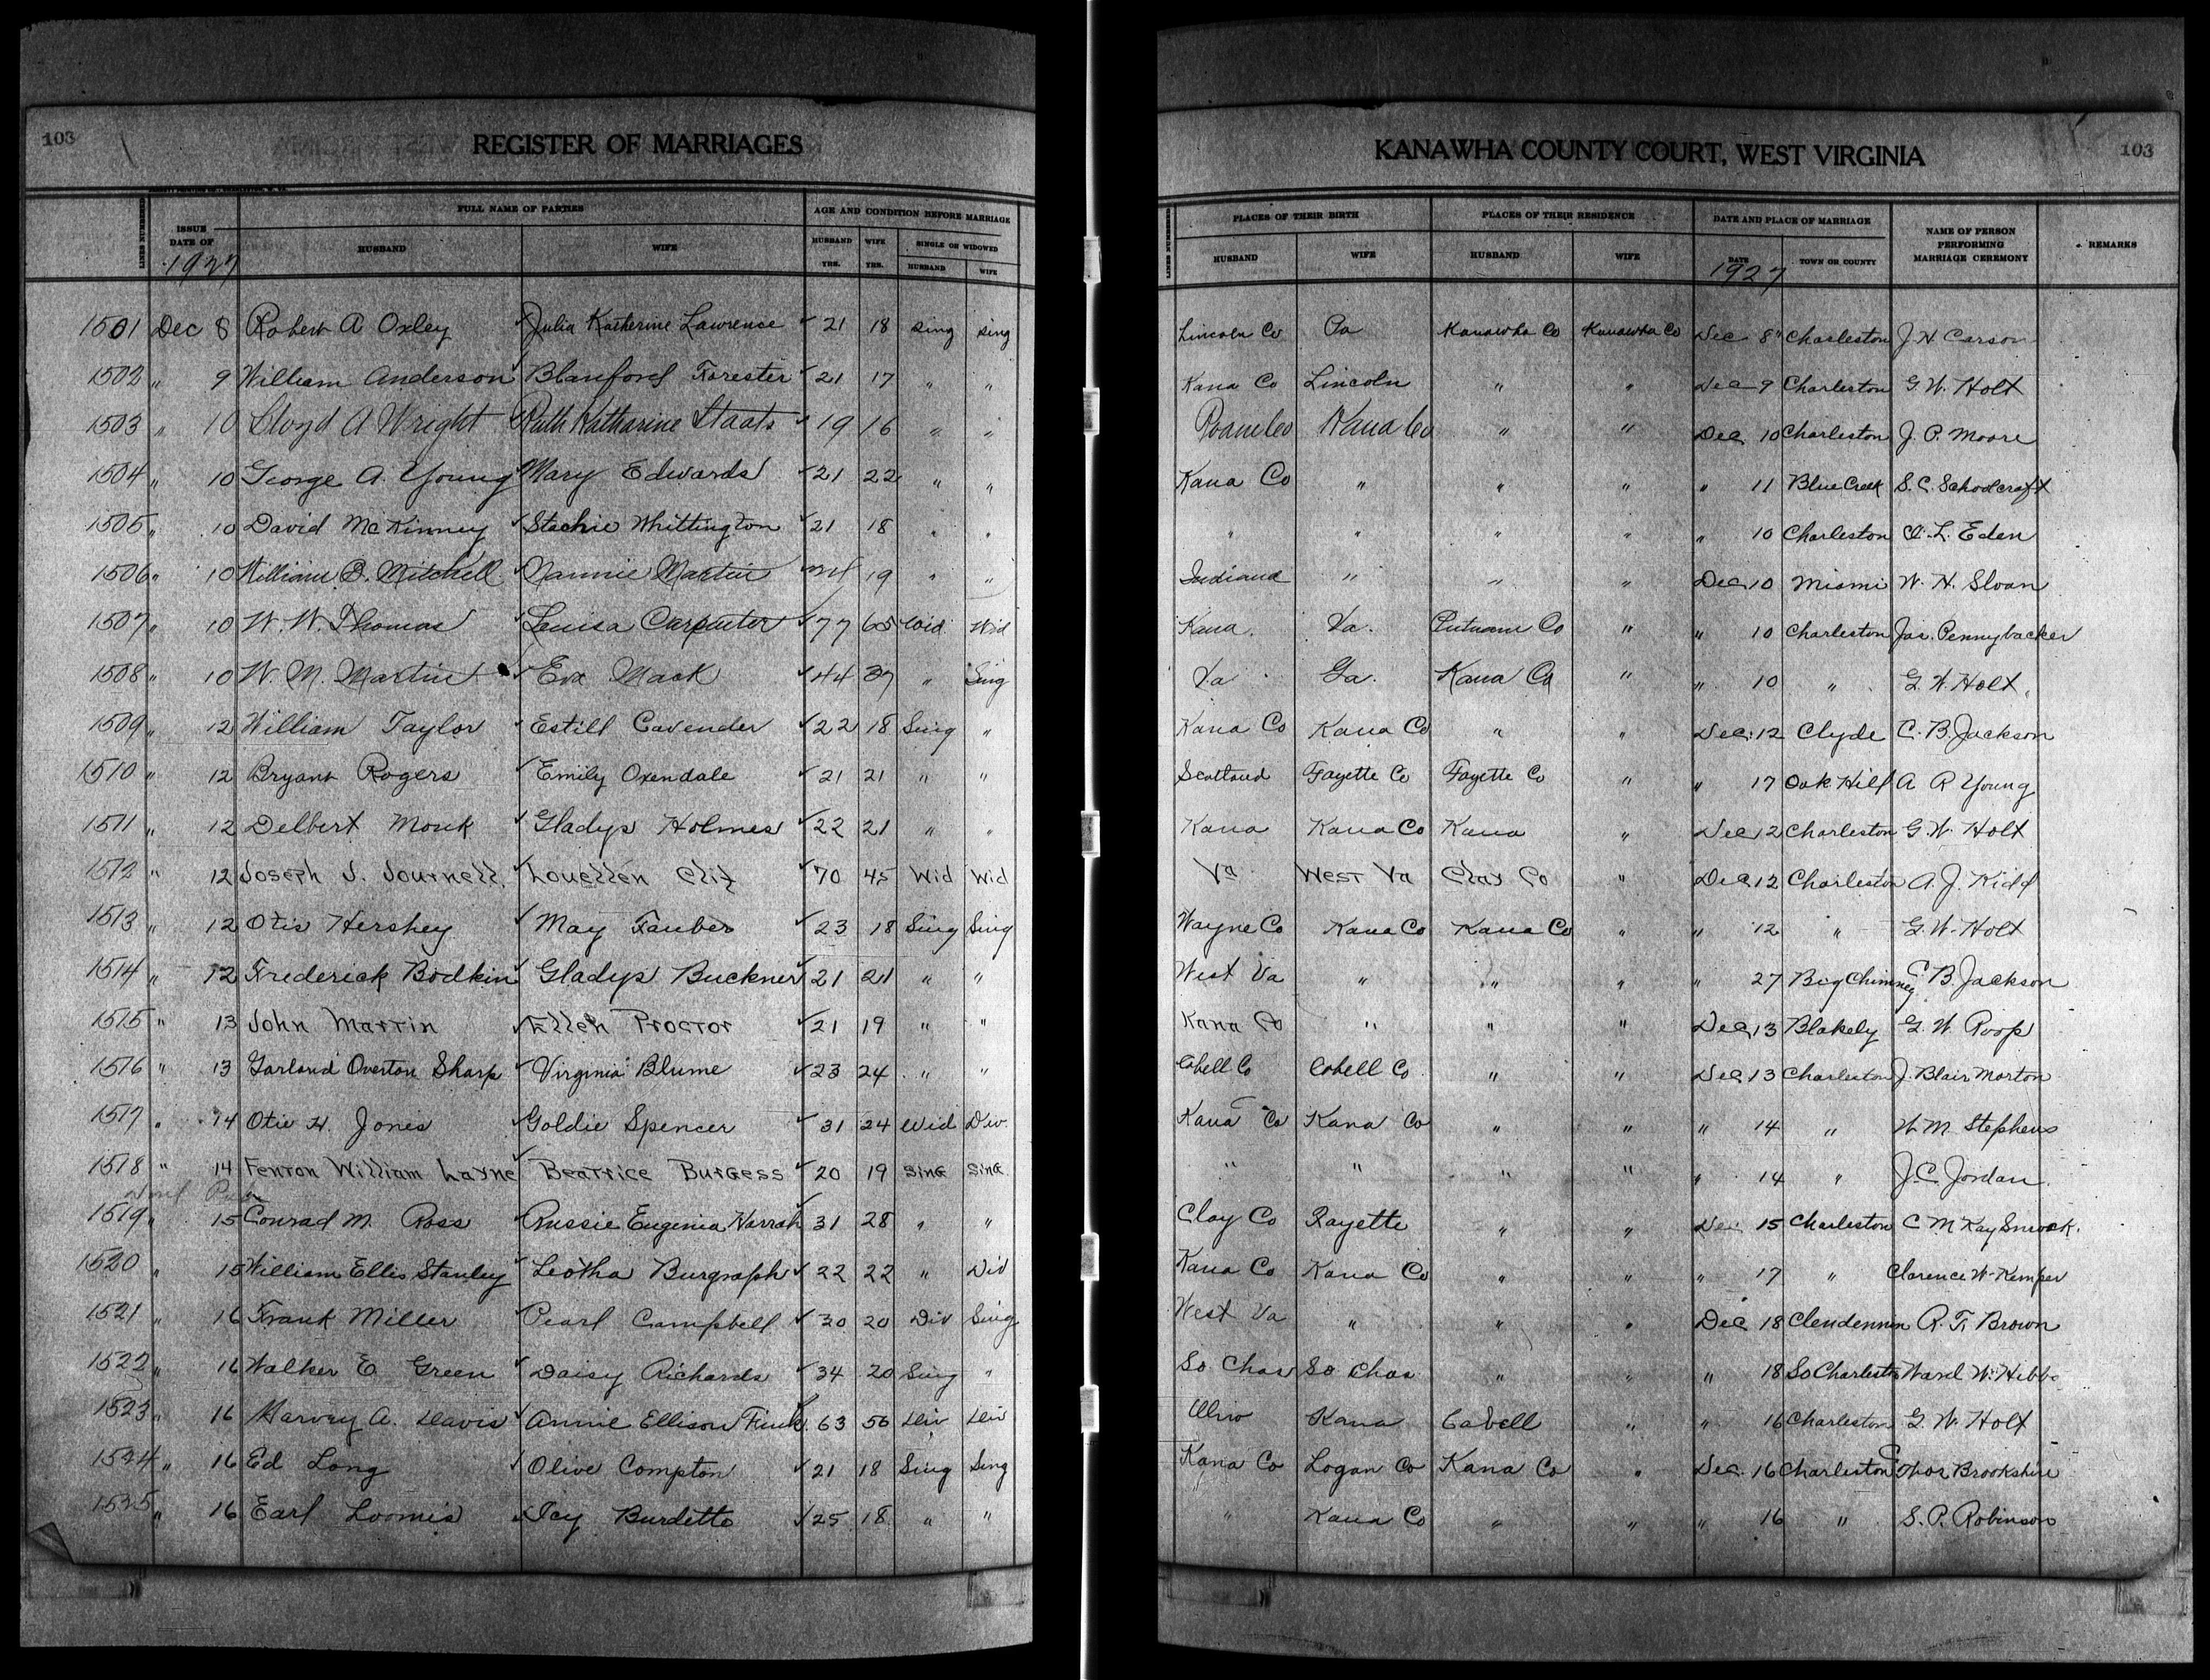 103
REGISTER OF MARRIAGES
KANAWHA COUNTY COURT, WEST VIRGINIA
103
LINES NUMBERED
ISSUE DATE OF
1927
FULL NAME OF PARTIES
HUSBAND
WIFE
AGE AND CONDITION BEFORE MARRIAGE
HUSBAND YRS.
WIFE YRS.
SINGLE OR WIDOWED
HUSBAND
WIFE
LINES NUMBERED
PLACES OF THEIR BIRTH
HUSBAND
WIFE
PLACES OF THEIR RESIDENCE
HUSBAND
WIFE
DATE AND PLACE OF MARRIAGE
DATE
1927
TOWN OR COUNTY
NAME OF PERSON PERFORMING MARRIAGE CEREMONY
REMARKS
1501 Dec 8 Robert A Oxley Julia Katherine Lawrence 21 18 Sing Sing Lincoln Co Pa Kanawha Co Kanawha Co Dec 8" Charleston J H Carson
1502 " 9 William Anderson Blanford Forester 21 17 " " Kana Co Lincoln " " Dec 9 Charleston G. W. Holt
1503 " 10 Lloyd A Wright Ruth Katharine Staats 19 16 " " Roane Co Kana Co " " Dec 10 Charleston J. P. Moore
1504 " 10 George A. Young Mary Edwards 21 22 " " Kana Co " " " " 11 Blue Creek S. C. Schoolcraft
1505 " 10 David McKinney Stachie Whittington 21 18 " " " " " " " 10 Charleston O. L. Eden
1506 " 10 William B. Mitchell Nannie Martin 24 19 " " Indiana " " " Dec 10 Miami W. H. Sloan
1507 " 10 W. W. Thomas Louisa Carpenter 77 65 Wid Wid Kana. Va. Putnam Co " " 10 Charleston Jas. Pennybacker
1508 " 10 W. M. Martin Eva Mack 44 37 " Sing Va Ga. Kana Co " " 10 " G. W. Holt
1509 " 12 William Taylor Estill Cavender 22 18 Sing " Kana Co Kana Co " " Dec. 12 Clyde C. B. Jackson
1510 " 12 Bryant Rogers Emily Oxendale 21 21 " " Scotland Fayette Co Fayette Co " " 17 Oak Hill A R Young
1511 " 12 Delbert Monk Gladys Holmes 22 21 " " Kana Kana Co Kana " Dec 12 Charleston G. W. Holt
1512 " 12 Joseph J. Journell Louellen Clif 70 45 Wid Wid Va West Va Clay Co " Dec 12 Charleston A. J. Kidd
1513 " 12 Otis Hershey May Fauber 23 18 Sing Sing Wayne Co Kana Co Kana Co " " 12 " G. W. Holt
1514 " 12 Frederick Bodkin Gladys Buckner 21 21 " " West Va " " " " 27 Big Chimney C. B. Jackson
1515 " 13 John Martin Ellen Proctor 21 19 " " Kana Co " " " Dec 13 Blakely G. W. Roop
1516 " 13 Garland Overton Sharp Virginia Blume 23 24 " " Cabell Co Cabell Co " " Dec 13 Charleston J. Blair Morton
1517 " 14 Otie H. Jones Goldie Spencer 31 24 Wid Div. Kana Co Kana Co " " " 14 " W. M. Stephens
1518 " 14 Fenton William Layne Beatrice Burgess 20 19 Sing Sing " " " " " 14 " J. C. Jordan
1519 " 15 Conrad M. Ross Russie Eugenia Harrah 31 28 " " Clay Co Fayette " " Dec 15 Charleston C McKay Smock.
1520 " 15 William Ellis Stanley Leotha Burgraph 22 22 " Div Kana Co Kana Co " " " 17 " Clarence W. Kemper
1521 " 16 Frank Miller Pearl Campbell 30 20 Div Sing West Va " " " Dec 18 Clendennin R. F. Brown
1522 " 16 Walker E Green Daisy Richards 34 20 Sing " So. Chas So Chas " " " 18 So Charleston Ward W. Hibbs
1523 " 16 Harvey A. Davis Annie Ellison Fink 63 50 Div Div Ohio Kana Cabell " " 16 Charleston G. W. Holt
1524 " 16 Ed Long Olive Compton 21 18 Sing Sing Kana Co Logan Co Kana Co " Dec. 16 Charleston Thos Brookshire
1525 " 16 Earl Loomis Icy Burdette 25 18 " " " Kana Co " " " 16 " S. P. Robinson